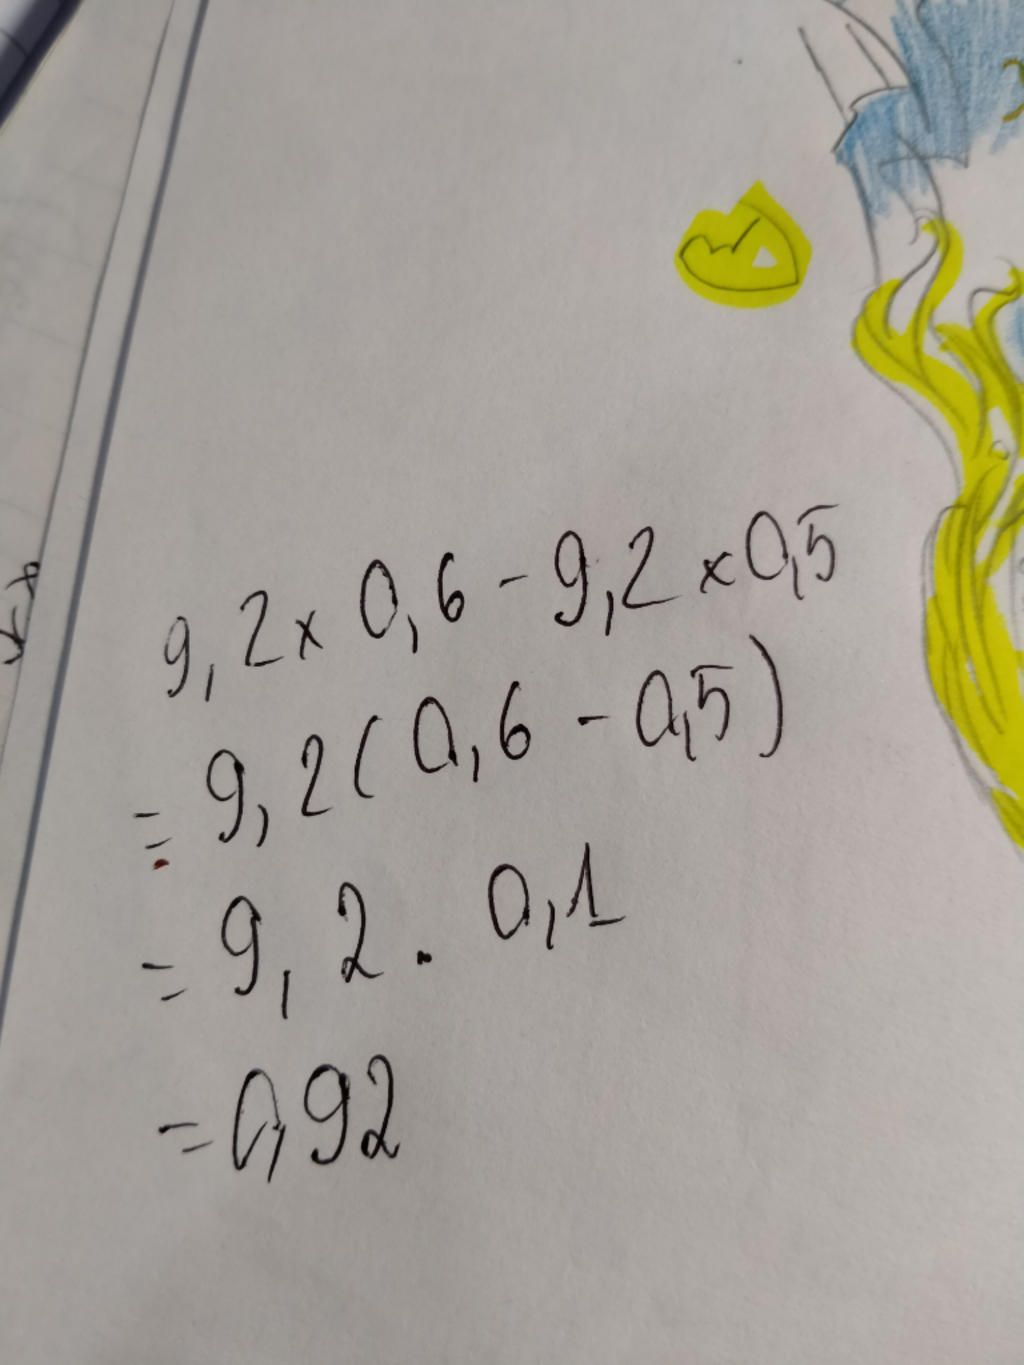 9,2 x 0,6 - 9,2 x 0,5
= 9,2 ( 0,6 - 0,5 )
= 9,2 . 0,1
= 0,92